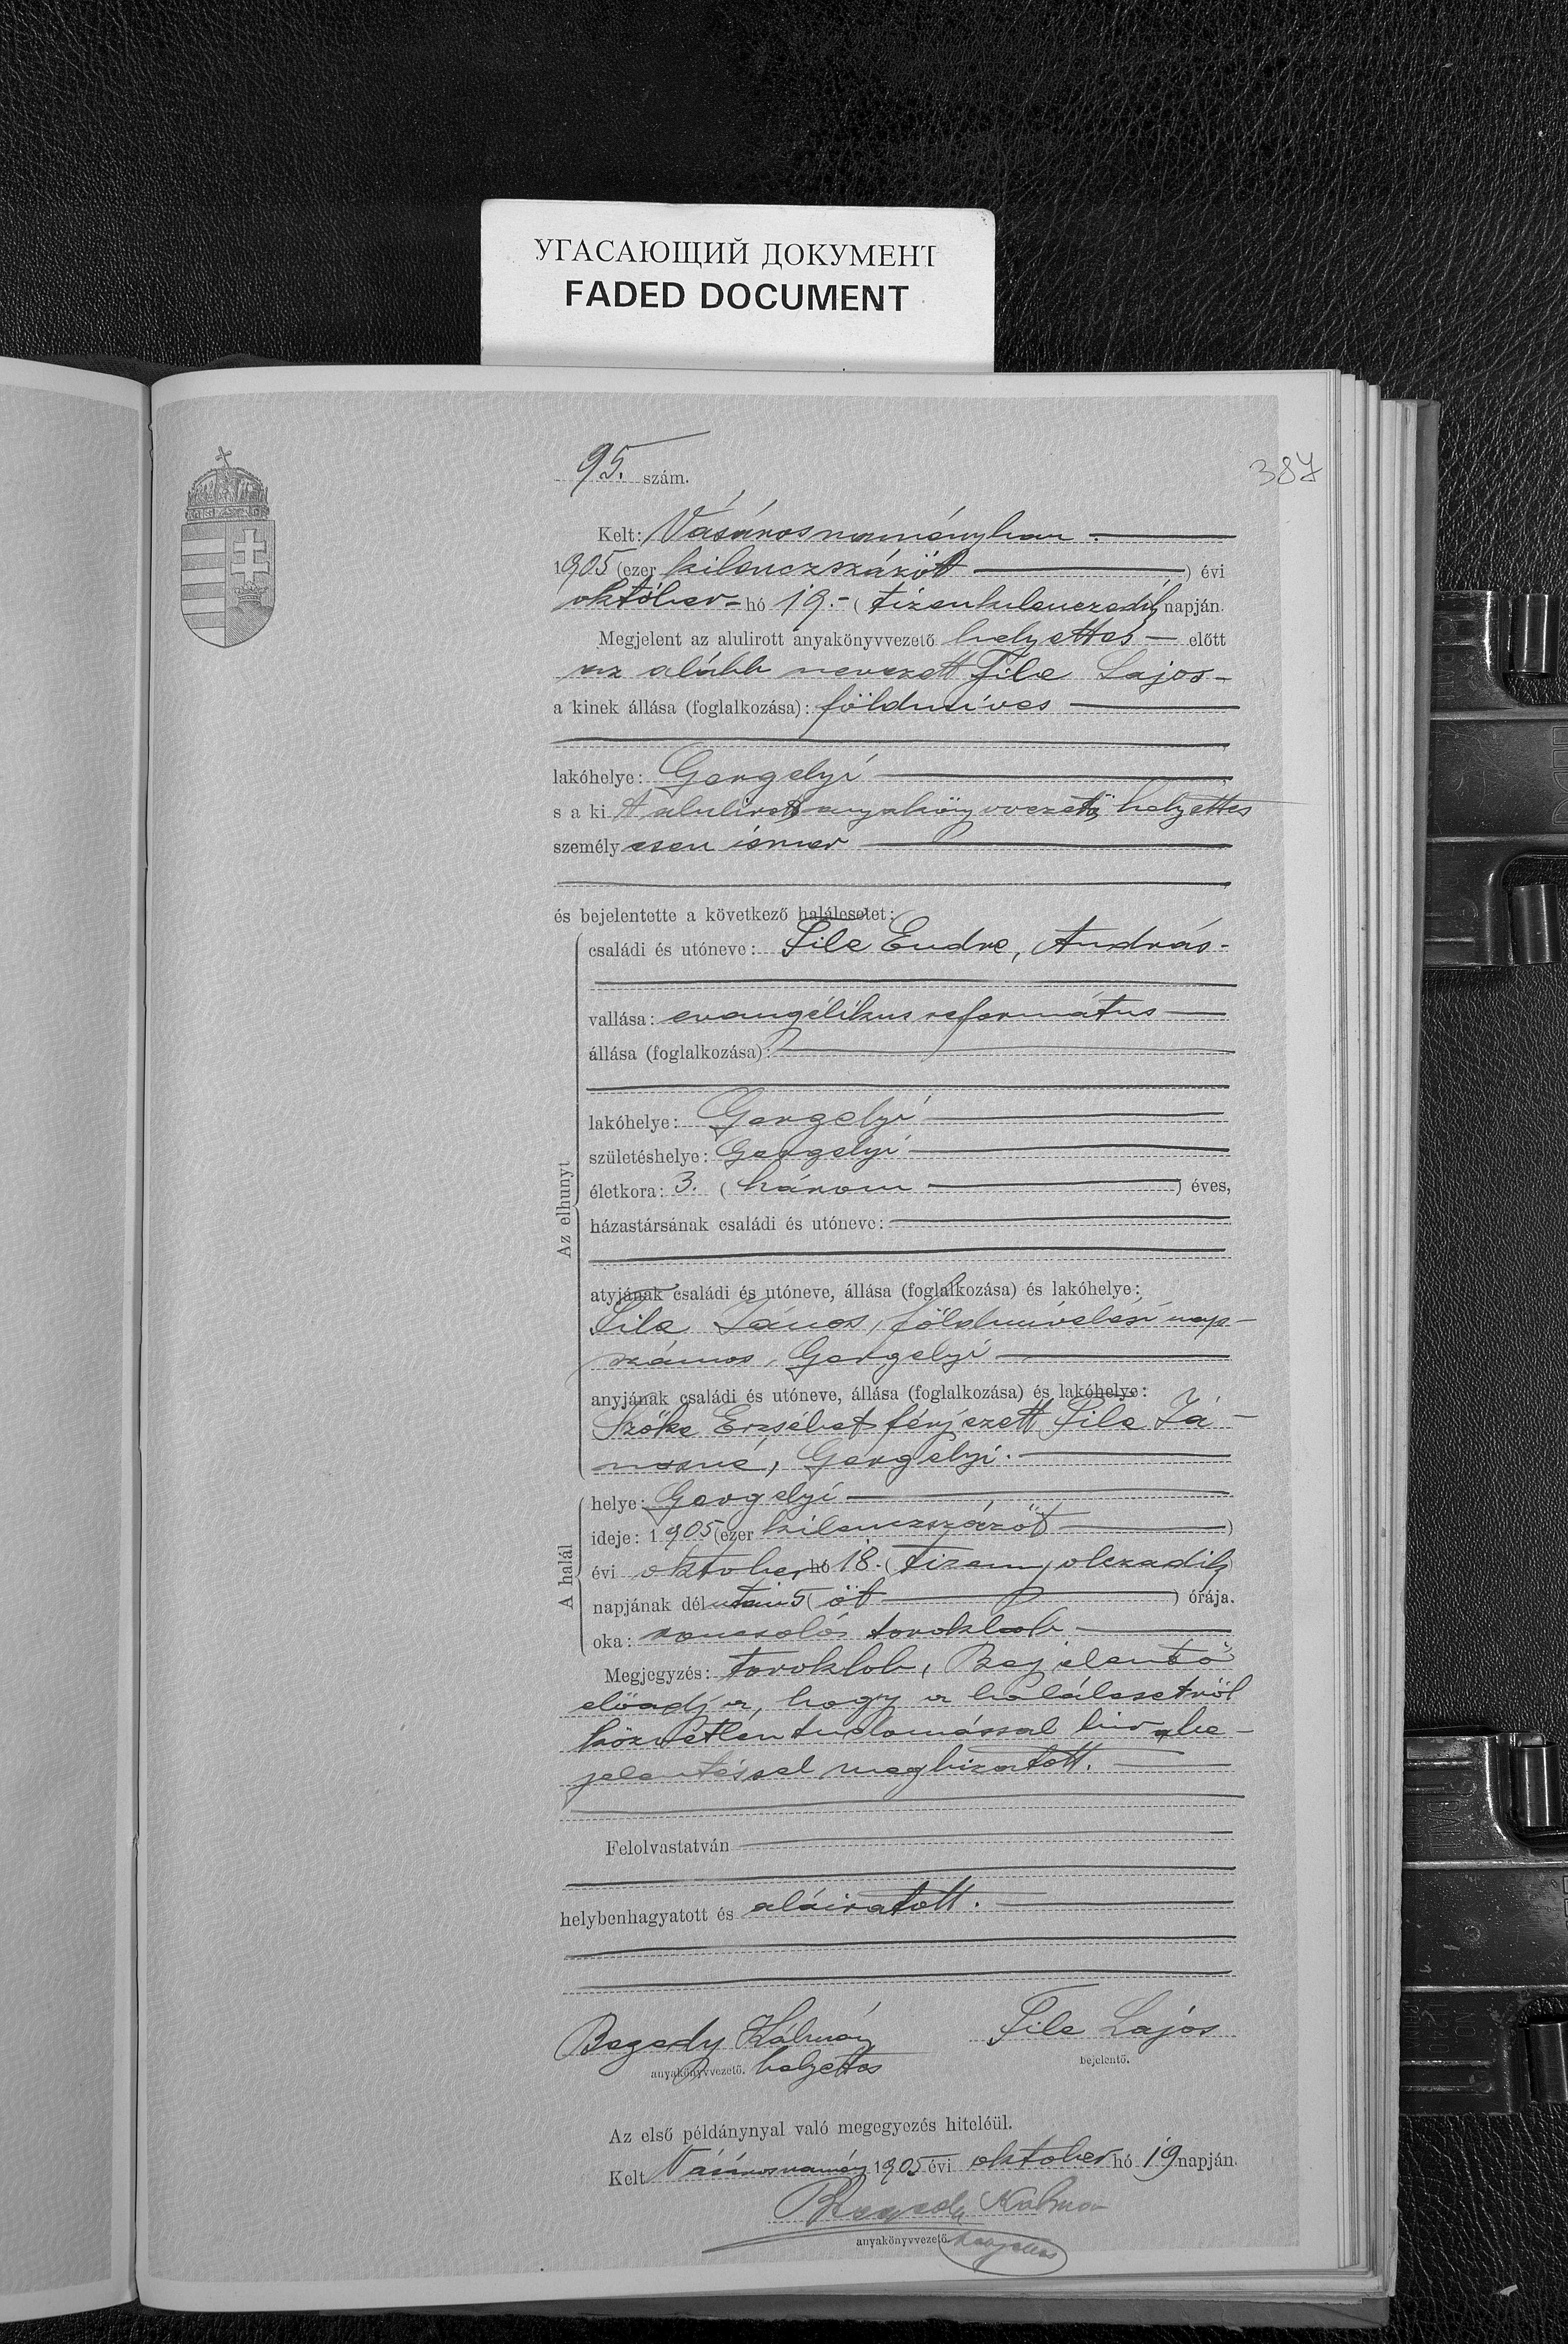 УГАСАЮЩИЙ ДОКУМЕНТ
FADED DOCUMENT
387
95. szám.
Kelt: Vásárosnaményban.
1905 (ezer kilenczszázöt) évi
október hó 19.- (tizenkilenczedik napján.
Megjelent az alulirott anyakönyvvezető helyettes előtt
az alább nevezett File Lajos
a kinek állása (foglalkozása): földmíves
lakóhelye: Gergelyi
s a ki A alulirott anyakönyvvezető helyettes
személyesen ismer
és bejelentette a következő halálesetet:
Az elhunyt
családi és utóneve: File Endre, András
vallása: evangélikus református
állása (foglalkozása):
lakóhelye: Gergelyi
születéshelye: Gergelyi
életkora: 3. (három) éves,
házastársának családi és utóneve:
atyjának családi és utóneve, állása (foglalkozása) és lakóhelye:
File János, földmívelési nap-
számos, Gergelyi
anyjának családi és utóneve, állása (foglalkozása) és lakóhelye:
Szőke Erzsébet férjezett File Já-
nosné, Gergelyi.
A halál
helye: Gergelyi
ideje: 1905 (ezer kilenczszázöt)
évi oktober hó 18. (tizennyolczadik)
napjának délután 5 (öt) órája.
oka: roncsoló toroklob
Megjegyzés: toroklob, Bejelentő
előadja, hogy a halálesetről
közvetlen tudomással bir a be-
jelentéssel megbizatott.
Felolvastatván
helybenhagyatott és aláiratott.
Bezedy Kálmán
File Lajos
anyakönyvvezető. helyettes
bejelentő.
Az első példánynyal való megegyezés hiteléül.
Kelt Vásárosnamény 1905 évi oktober hó 19 napján.
Kálmán
anyakönyvvezető helyettes